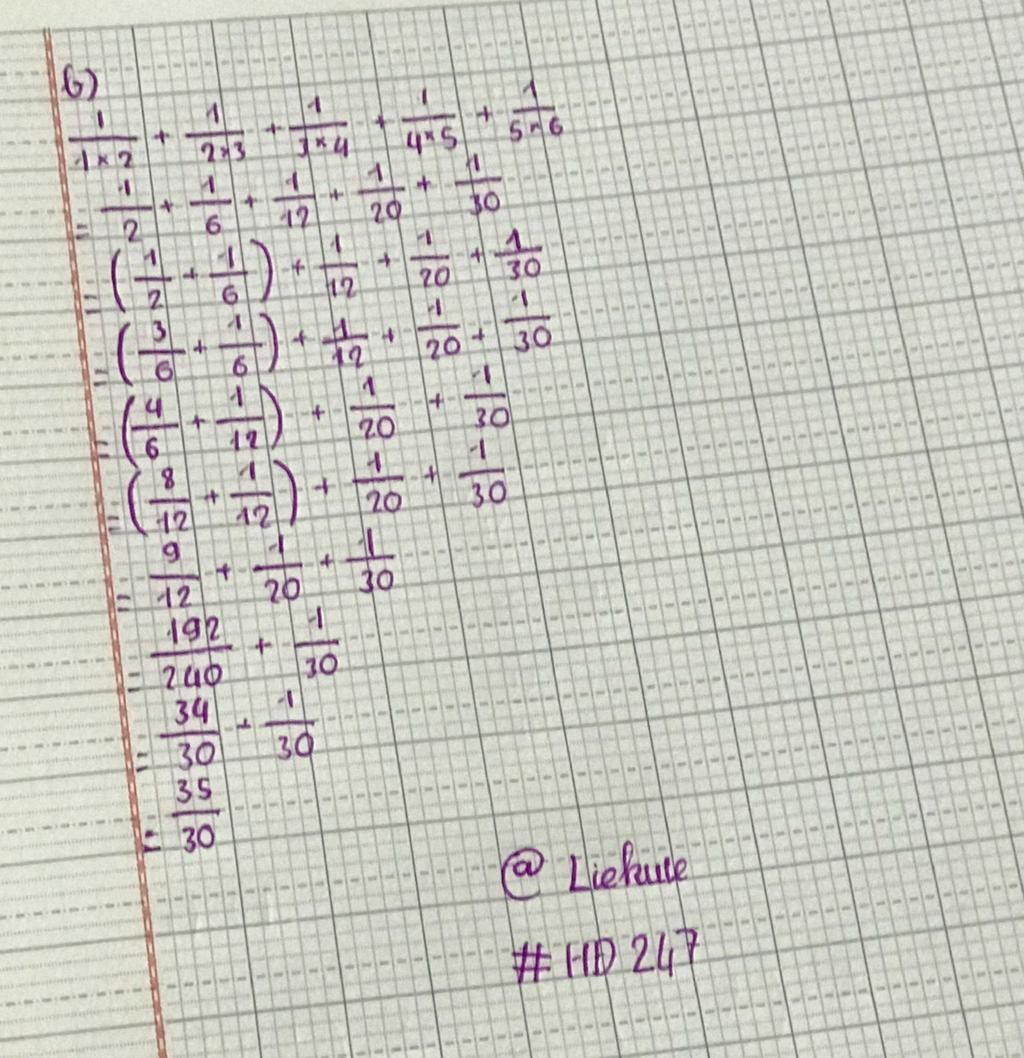 b)
1/1×2 + 1/2×3 + 1/3×4 + 1/4×5 + 1/5×6
= 1/2 + 1/6 + 1/12 + 1/20 + 1/30
= (1/2 + 1/6) + 1/12 + 1/20 + 1/30
= (3/6 + 1/6) + 1/12 + 1/20 + 1/30
= (4/6 + 1/12) + 1/20 + 1/30
= (8/12 + 1/12) + 1/20 + 1/30
= 9/12 + 1/20 + 1/30
= 192/240 + 1/30
= 34/30 + 1/30
= 35/30
@ Liekute
# HD 247